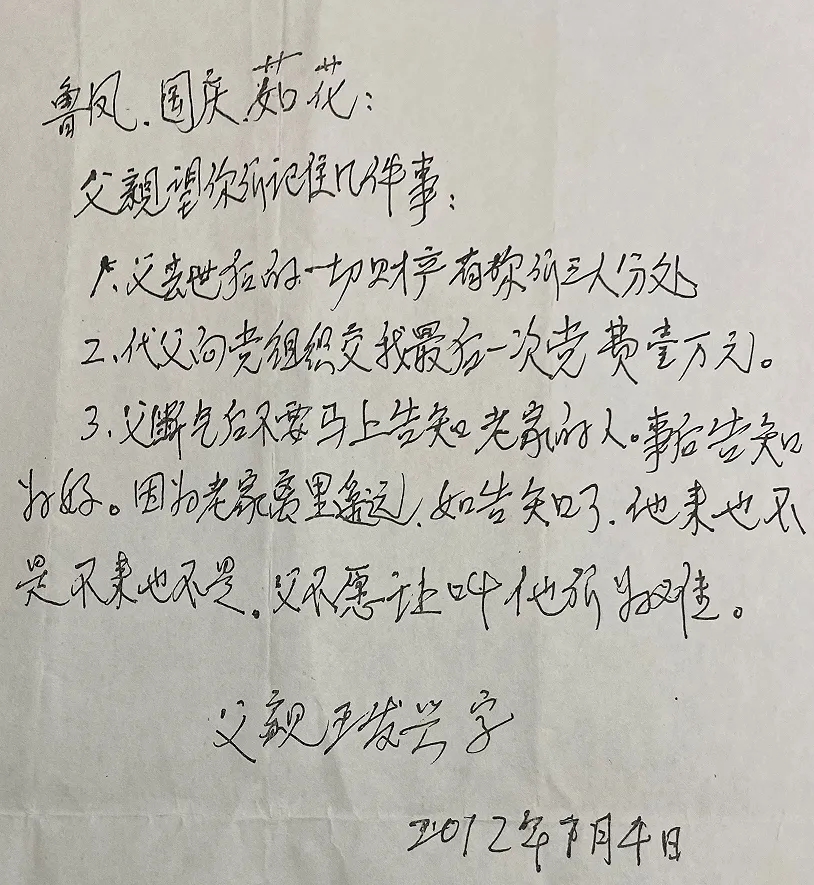 鲁凤、国庆、茹花：
父親望你们记住几件事：
1、父去世后的一切财产有你们三人分处
2、代父向党组织交我最后一次党费壹万元。
3、父断气后不要马上告知老家的人。事后告知
为好。因为老家离里遥远、如告知了、他来也不
是不来也不是。父不愿让叫他们为难。
父亲王发兴字
2012年7月4日